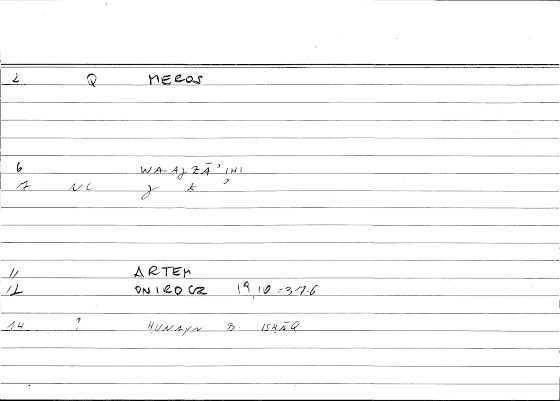 2 Q MEROS
6 WA-AJZĀʾIHI
7 NC J Z ʾ
11 ARTEM
12 ONIROCR 19,10 = 37.6
14 ? HUNAYN B. ISHĀQ